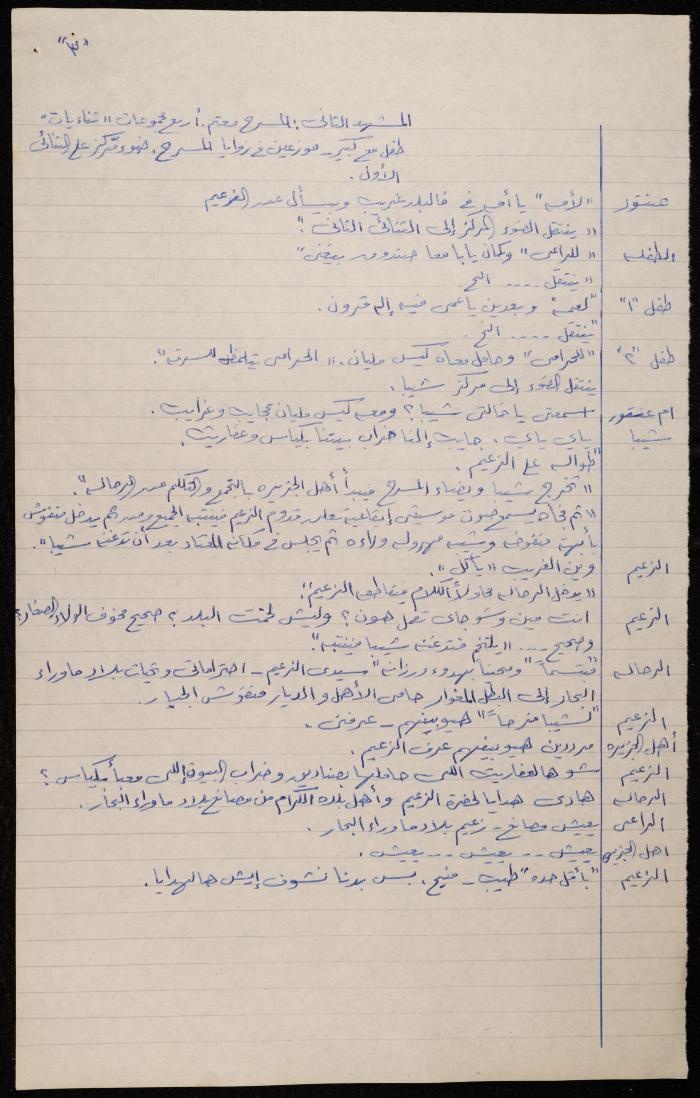 "٣"
المشهد الثاني: المسرح معتم. أربع مجموعات "ثنائيات"
طفل مع كبير - موزعين في زوايا المسرح. ضوء مركز على الثنائي
الأول.
عنتور "لأمه" يا أمه في بالبلد غريب وبيسأل عن الزعيم
"ينتقل الضوء المركز إلى الثنائي الثاني"
الطفله "للراعي" وكمان يابا معا صندوق بيغني"
"ينتقل .... الخ.
طفل "١" "لعمه" وبعدين يا عمي فيه إله قرون.
"ينتقل .... الخ.
طفل "٢" "للحرامي" وحامل معاه كيس مليان. "الحرامي يتلمظ للسرقه".
ينتقل الضوء إلى مركز شيبا.
ام عنتور اسمعتي يا خالتي شيبا؟ ومعه كيس مليان عجايب وغرايب.
شيبا ياي ياي. جايب إلنا خراب بيتنا بكياس وعفاريت.
طوالي على الزعيم.
"تخرج شيبا ويضاء المسرح فيبدأ أهل الجزيره بالتجمع والتكلم عن الرحاله".
"ثم فجأه يسمع صوت موسيقى ايقاعية تعلن قدوم الزعيم فينتبه الجميع ومن ثم يدخل منفوش
بأبهة منفوخه وشيبه مهروله وراءه ثم يجلس في مكانه المعتاد بعد أن تدغنه شيبا".
الزعيم وين الغريب
"يدخل الرحاله محاولاً الكلام فيقاطعه الزعيم"
الزعيم انت مين وشو جاي تعمل هون؟ وليش طخت البلد؟ صحيح مخوف الولاد الصغار؟
وصحيح .... "يلتخم فتدغنه شيبا فينتبه".
الرحاله "مبتسماً" ومحنياً بهدوء ورزانه" سيدي الزعيم - احتراماتي وتحيات بلاد ما وراء
البحار إلى البطل المغوار حامي الأهل والديار منفوش الجبار.
الزعيم "لشيبا فرحاً" هيو بيفهم - عرفني.
أهل الجزيره مرددين هيو بيفهم عرف الزعيم.
الزعيم شو هالعفاريت اللي حاملها بصناديق وخراب البيوت إللي معبأ بكياس؟
الرحاله هادي هدايا لحضرة الزعيم وأهل بلده الكرام من مصانع بلاد ما وراء البحار.
الراعي يعيش مصانع - زعيم بلاد ما وراء البحار.
اهل الجزيره يعيش --- يعيش --- يعيش.
الزعيم "بأقل حده" طيب - منيح. بس بدنا نشوف إيش هالهدايا.